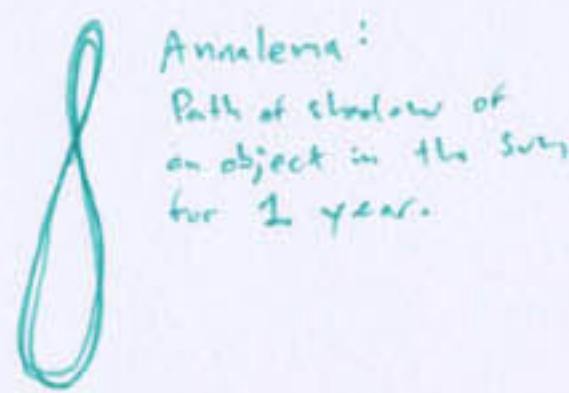 Annalema:
Path of shadow of
an object in the Sun
for 1 year.